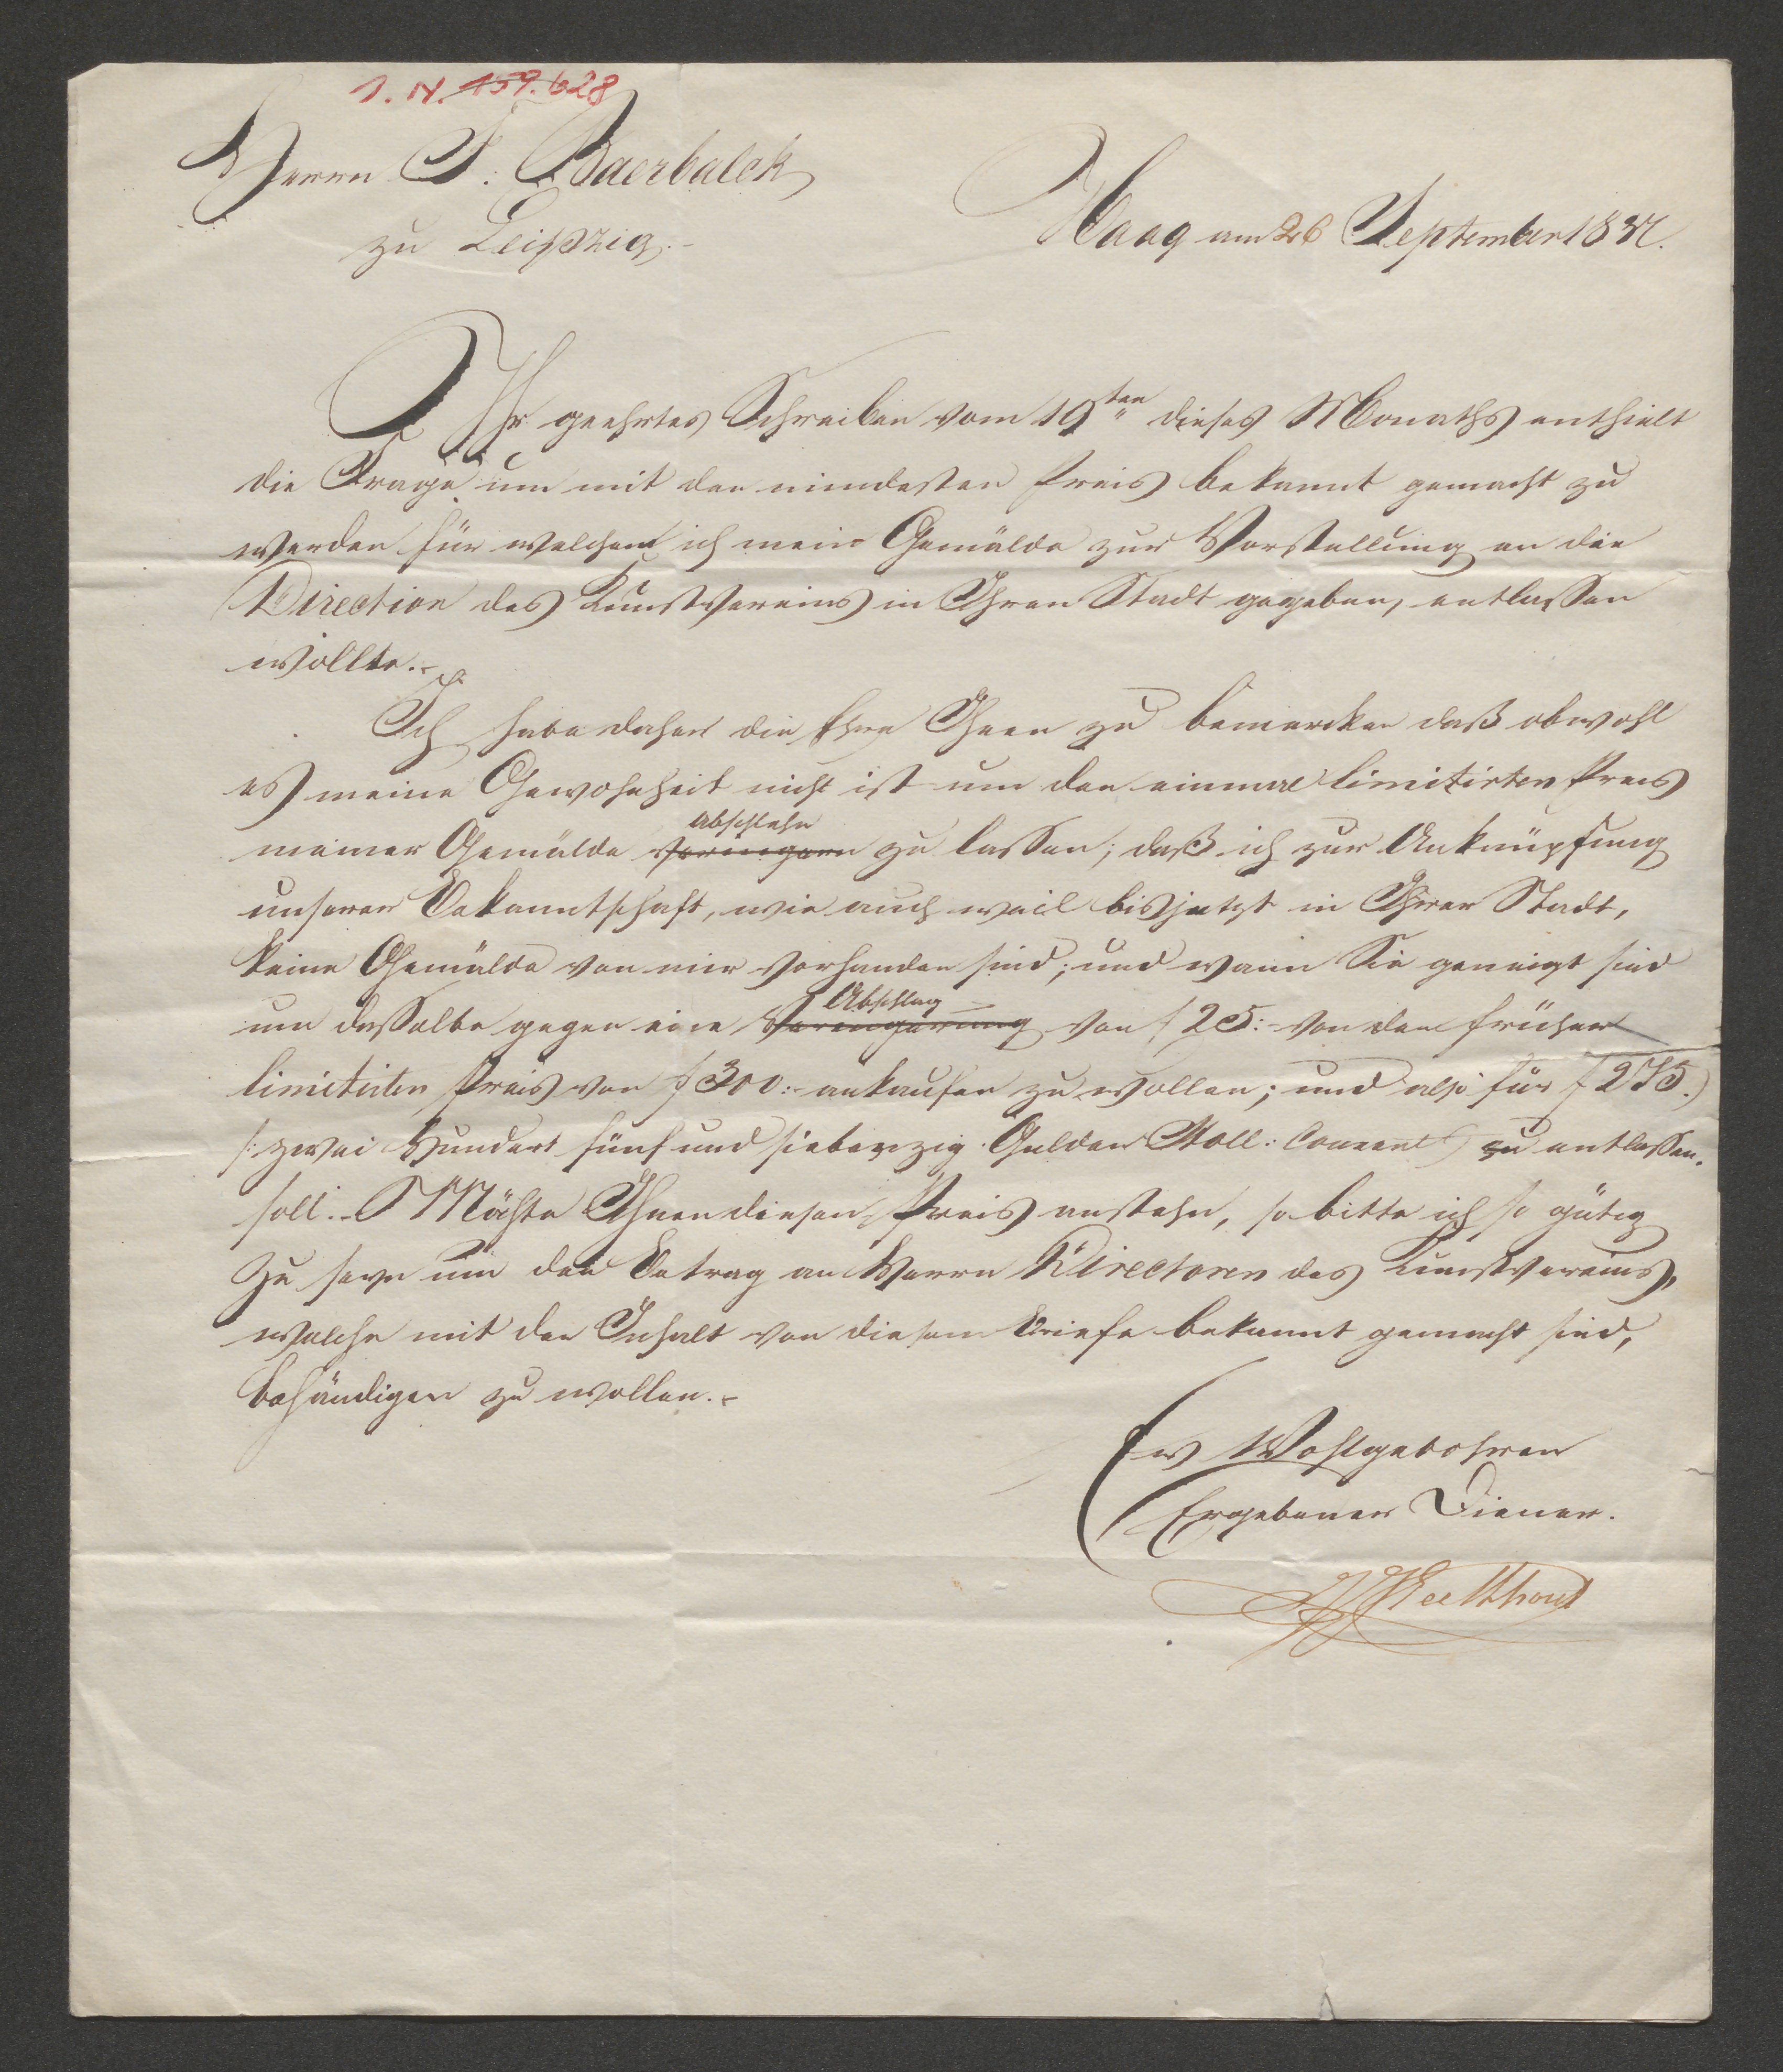 I. N. 159.628
Herrn I. Baerbalck
zu Leipzig.-
Haag am 26 September 1837.
Ihr geehrtes Schreiben vom 19ten dieses Monaths enthielt
die Frage um mit den mindesten Preis bekannt gemacht zu
werden für welchem ich mein Gemälde zur Vorstellung an die
Direction des Kunstvereins in Ihren Stadt gegeben, entlassen
wollte.-
Ich habe daher die Ehre Ihnen zu bemercken daß obwohl
es meine Gewohnheit nicht ist um den einmal limitirten Preis
Abschlahn
meiner Gemälde veringern zu lassen; daß ich zur Anknüpfung
unserer Bekanntschaft, wie auch weil bisjetzt in Ihrer Stadt,
keine Gemälde von mir vorhanden sind; und wann Sie geneigt sind
Abschlag
um dasselbe gegen eine Veringerung von f 25:- von dem früher
limitirten Preis von f 300:- ankaufen zu wollen; und also für f 275.
/: zwei Hundert fünf und siebenzig Gulden Holl: Courant) zu entlassen.
soll.- Möchte Ihnen diesen Preis anstehn, so bitte ich so gütig
zu seyn um den Betrag an Herrn Directoren des Kunstvereins,
welche mit den Inhalt von diesem Briefe bekannt gemacht sind,
behändigen zu wollen.-
Ew Wohlgebohren
Ergebener Diener.